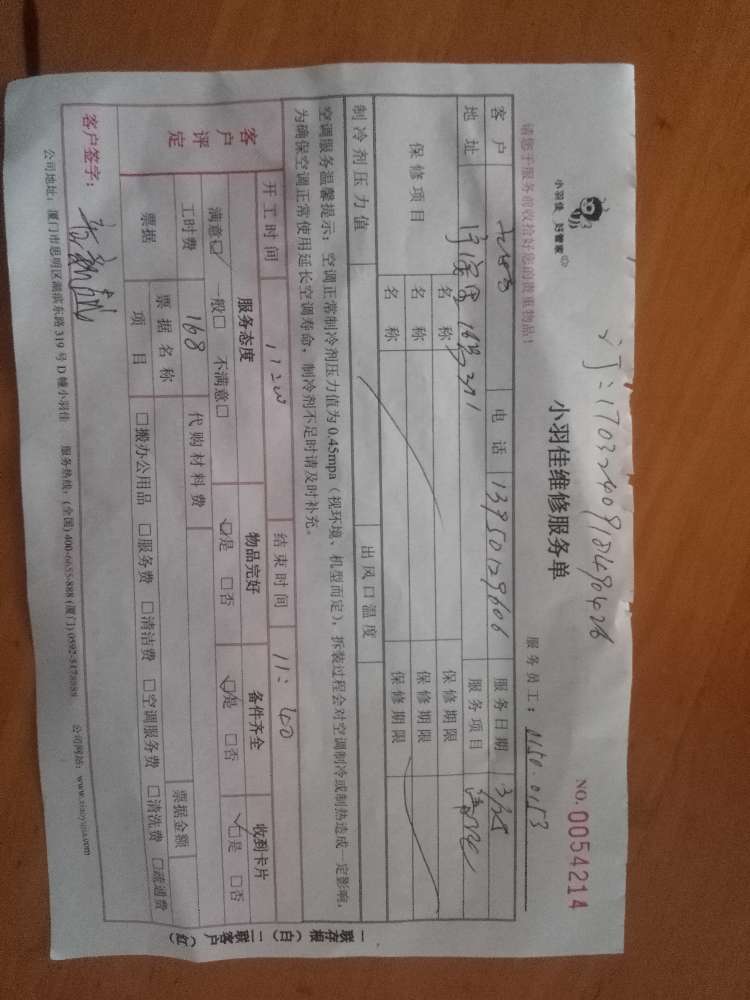 小羽佳 好管家
小羽佳维修服务单
NO.0054214
请您于服务前收拾好您的贵重物品！
服务员工：N150.0153
客户 电话 13950129606 服务日期 3/25
地址 服务项目
保修项目 名称 保修期限
名称 保修期限
名称 保修期限
制冷剂压力值 出风口温度
空调服务温馨提示：空调正常制冷剂压力值为0.45mpa（视环境、机型而定），拆装过程会对空调制冷或制热造成一定影响，
为确保空调正常使用延长空调寿命，制冷剂不足时请及时补充。
开工时间 结束时间 11：40
客户评定 服务态度 物品完好 备件齐全 收到卡片
满意☑ 一般□ 不满意□ ☑是 □否 ☑是 □否 ☑是 □否
工时费 168 代购材料费
票据 票据名称 票据金额
项目 □搬办公用品 □服务费 □清洁费 □空调服务费 □清洗费 □疏通费
客户签字：
公司地址：厦门市思明区湖滨东路319号D幢小羽佳 服务热线：(全国)400-6655-888 (厦门)0592-5178888 公司网站：www.xiaoyujia.com
一联存根（白） 二联客户（红）